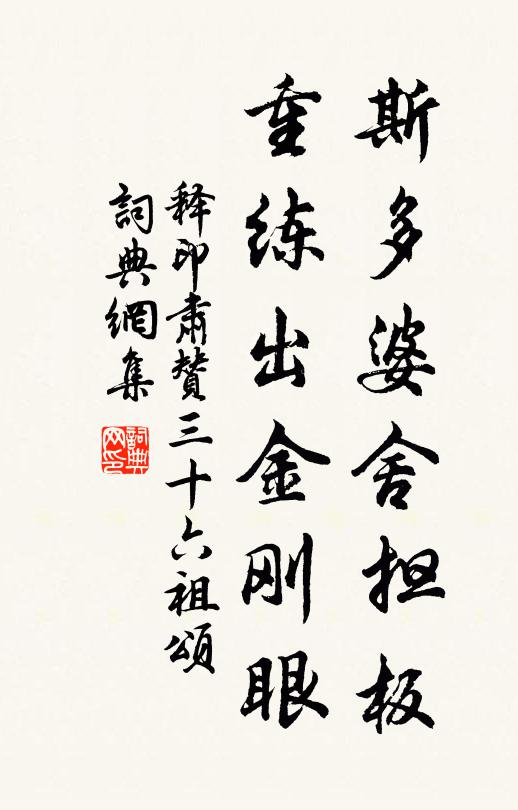 斯多婆舍担板
重练出金刚眼
释印肃赞三十六祖颂
詞典網集
詞典网印